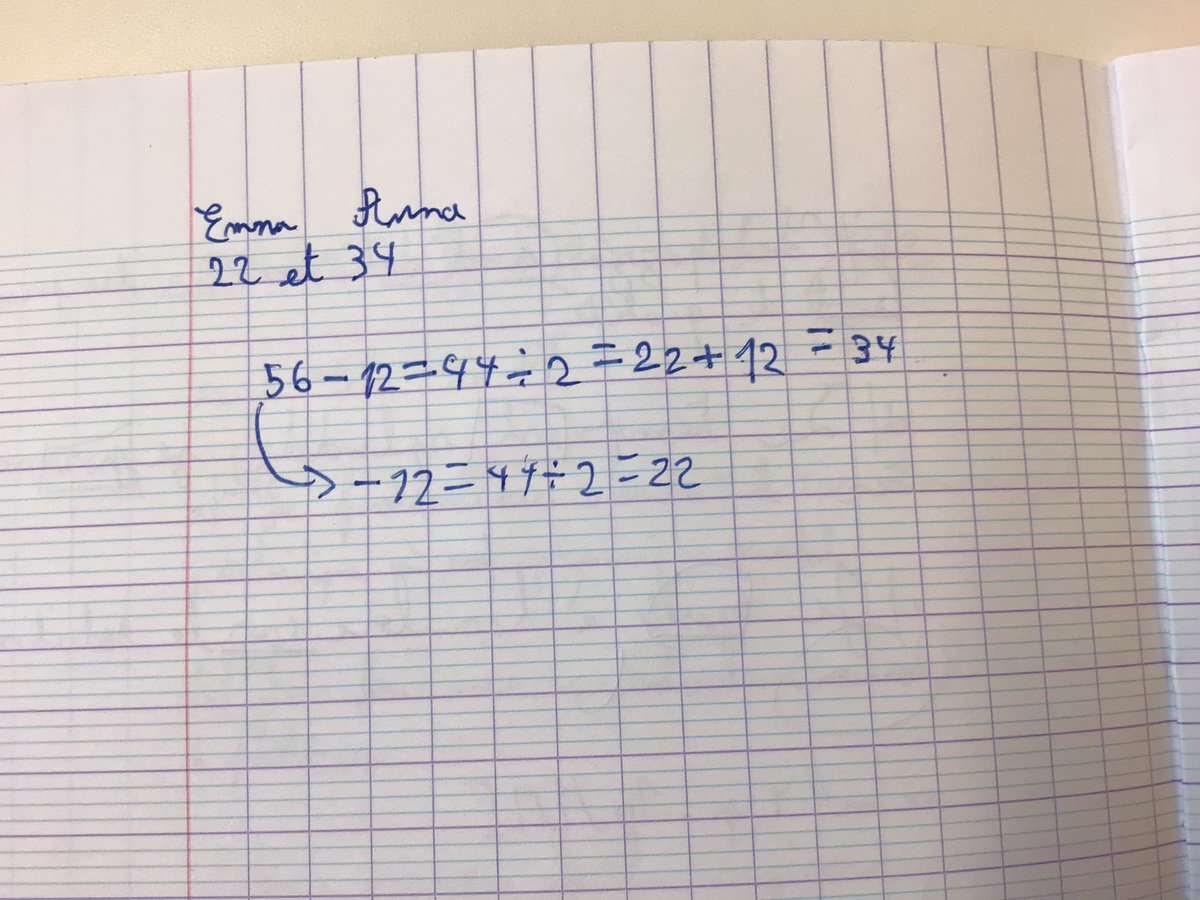 Emma Anna
22 et 34
56 - 12 = 44 ÷ 2 = 22 + 12 = 34
- 12 = 44 ÷ 2 = 22